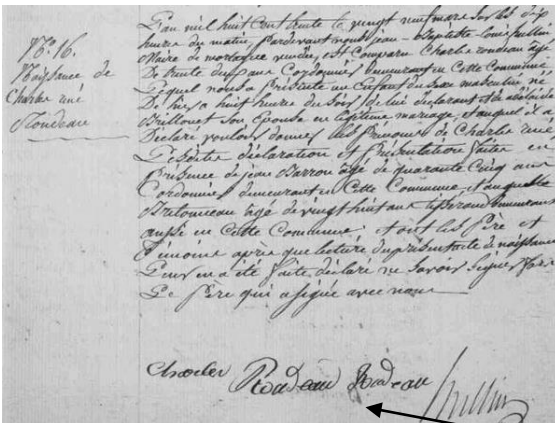 N.° 16.
Naissance de
Charles réné
Rondeau
L'an mil huit cent trente le vingt neuf mars sur les dix
heures du matin, pardevant nous jean-Baptiste louis
Maire de mortagne vendée, est comparu Charles rondeau agé
De trente ans Cordonnier Demeurant en Cette Commune
Lequel nous a présenté un enfant du sexe masculin né
De hier a huit heures du soir, de lui déclarant et de
Brillouet son Epouse en légitime mariage, et auquel il a
Déclaré vouloir donner les prénoms de Charles réné
Lesdites déclaration et présentation faites en
Présence de jean Barron agé de quarante cinq ans
Cordonnier demeurant en Cette Commune, et auguste
Bretonneau agé de vingt huit ans tisserand demeurant
aussi en Cette Commune, et ont les Père et
Témoins après que lecture du présent acte de naissance
Leur en a été faite, déclaré ne savoir signer fors
Le Père qui a signé avec nous
Charles Rodeau Rodeau